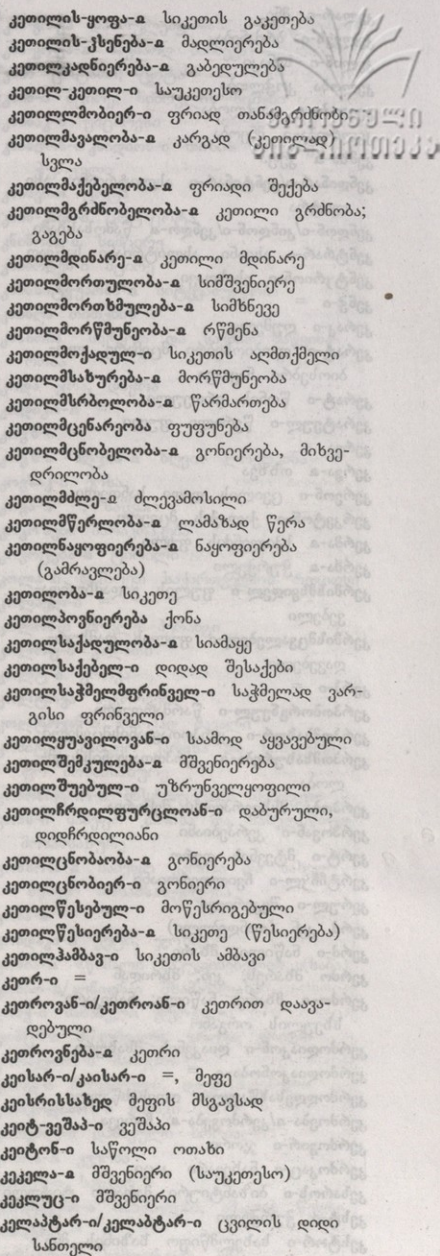 კეთილის-ყოფა-ჲ სიკეთის გაკეთება
კეთილის-ჴსენება-ჲ მადლიერება
კეთილკადნიერება-ჲ გაბედულება
კეთილ-კეთილ-ი საუკეთესო
კეთილლმობიერ-ი ფრიად თანამგრძნობი
კეთილმავალობა-ჲ კარგად (კეთილად)
სვლა
კეთილმაქებელობა-ჲ ფრიადი შექება
კეთილმგრძნობელობა-ჲ კეთილი გრძნობა;
გაგება
კეთილმდინარე-ჲ კეთილი მდინარე
კეთილმორთულობა-ჲ სიმშვენიერე
კეთილმორთხმულება-ჲ სიმხნევე
კეთილმორწმუნეობა-ჲ რწმენა
კეთილმოქადულ-ი სიკეთის აღმთქმელი
კეთილმსახურება-ჲ მორწმუნეობა
კეთილმსრბოლობა-ჲ წარმართება
კეთილმცენარეობა ფუფუნება
კეთილმცნობელობა-ჲ გონიერება, მიხვე-
დრილობა
კეთილმძლე-ჲ ძლევამოსილი
კეთილმწერლობა-ჲ ლამაზად წერა
კეთილნაყოფიერება-ჲ ნაყოფიერება
(გამრავლება)
კეთილობა-ჲ სიკეთე
კეთილპოვნიერება ქონა
კეთილსაქადულობა-ჲ სიამაყე
კეთილსაქებელ-ი დიდად შესაქები
კეთილსაჭმელმფრინველ-ი საჭმელად ვარ-
გისი ფრინველი
კეთილყუავილოვან-ი საამოდ აყვავებული
კეთილშემკულება-ჲ მშვენიერება
კეთილშუებულ-ი უზრუნველყოფილი
კეთილჩრდილფურცლოან-ი დაბურული,
დიდჩრდილიანი
კეთილცნობაობა-ჲ გონიერება
კეთილცნობიერ-ი გონიერი
კეთილწესებულ-ი მოწესრიგებული
კეთილწესიერება-ჲ სიკეთე (წესიერება)
კეთილჰამბავ-ი სიკეთის ამბავი
კეთრ-ი =
კეთროვან-ი/კეთროან-ი კეთრით დაავა-
დებული
კეთროვნება-ჲ კეთრი
კეისარ-ი/კაისარ-ი =, მეფე
კეისრისსახედ მეფის მსგავსად
კეიტ-ვეშაპ-ი ვეშაპი
კეიტონ-ი საწოლი ოთახი
კეკელა-ჲ მშვენიერი (საუკეთესო)
კეკლუც-ი მშვენიერი
კელაპტარ-ი/კელაბტარ-ი ცვილის დიდი
სანთელი